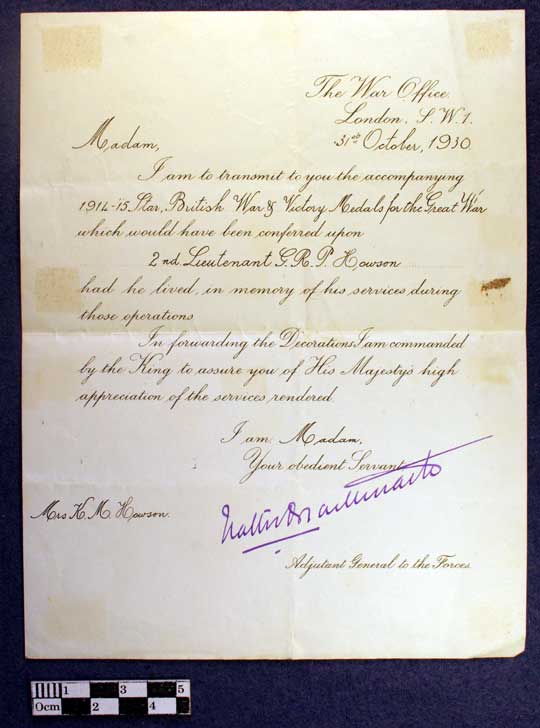 The War Office,
London, S.W.1.
31st October, 1930.
Madam,
I am to transmit to you the accompanying
1914-15 Star, British War & Victory Medals for the Great War
which would have been conferred upon
2nd Lieutenant G.R.P. Howson
had he lived, in memory of his services during
those operations
In forwarding the Decorations I am commanded
by the King to assure you of His Majesty's high
appreciation of the services rendered.
I am, Madam,
Your obedient Servant,
Mrs K.M. Howson.
Adjutant General to the Forces.
0cm 1 2 3 4 5